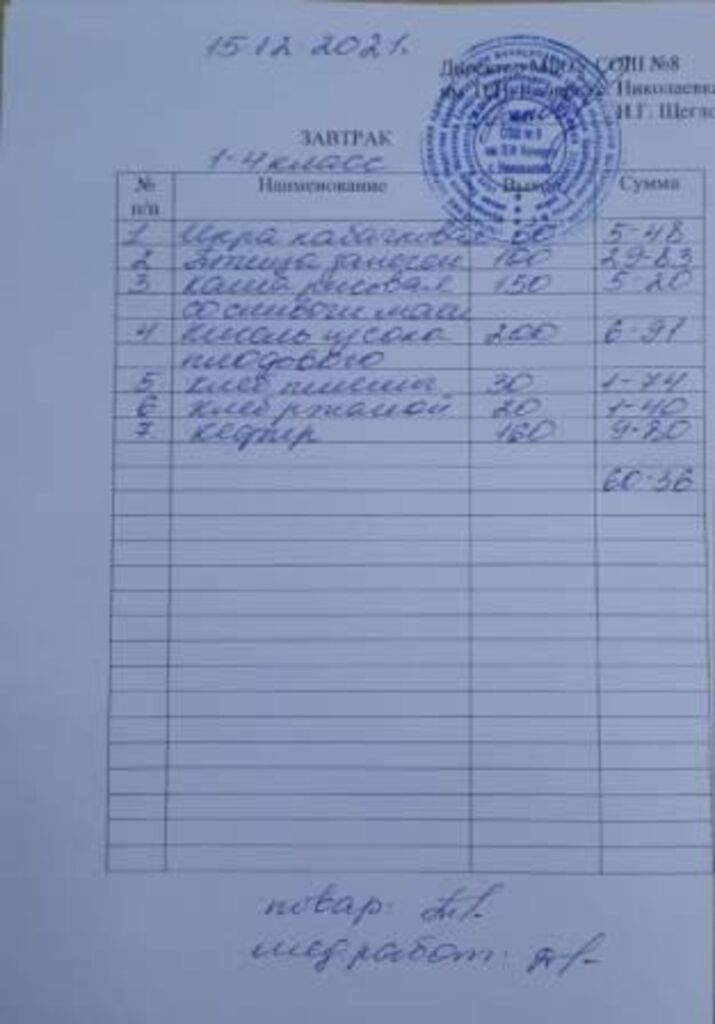 15.12.2021г.
Директор МБОУ СОШ №8
Николаевка
И.Г. Щегло
ЗАВТРАК
1-4 класс
№ п/п Наименование Выход Сумма
1 Икра кабачковая 60 5-48
2 Птица запечен 100 29-83
3 каша рисовая 150 5-20
со сливоч масл
4 кисель из сока 200 6-91
плодового
5 хлеб пшенич 30 1-74
6 хлеб ржаной 20 1-40
7. кефир 160 9-80
60-36
повар:
мед.работ: